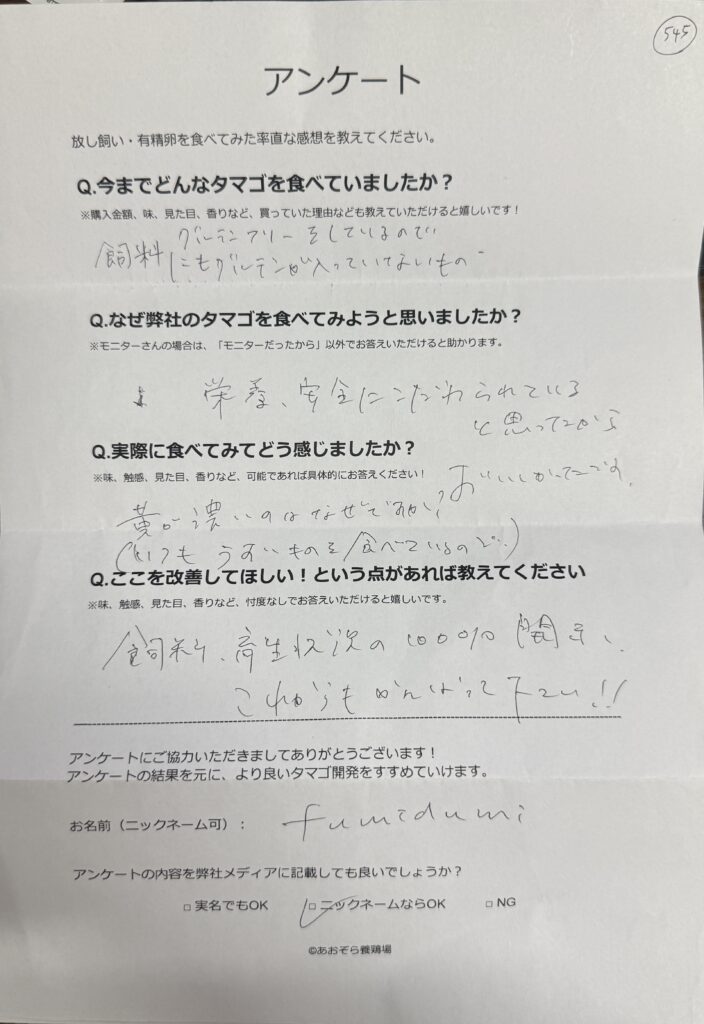 545
アンケート
放し飼い・有精卵を食べてみた率直な感想を教えてください。
Q.今までどんなタマゴを食べていましたか？
※購入金額、味、見た目、香りなど、買っていた理由なども教えていただけると嬉しいです！
グルテンフリーをしているので
飼料にもグルテンが入っていてないもの
Q.なぜ弊社のタマゴを食べてみようと思いましたか？
※モニターさんの場合は、「モニターだったから」以外でお答えいただけると助かります。
栄養、安全にこだわられている
と思ったから
Q.実際に食べてみてどう感じましたか？
※味、触感、見た目、香りなど、可能であれば具体的にお答えください！
おいしかったです。
黄が濃いのはなぜですか？
(いつもうすいものを食べているので..)
Q.ここを改善してほしい！という点があれば教えてください
※味、触感、見た目、香りなど、忖度なしでお答えいただけると嬉しいです。
飼料、育生状況の100%開示、
これからもがんばって下さい!!
アンケートにご協力いただきましてありがとうございます！
アンケートの結果を元に、より良いタマゴ開発をすすめていけます。
お名前（ニックネーム可）： fumidumi
アンケートの内容を弊社メディアに記載しても良いでしょうか？
□ 実名でもOK □ ニックネームならOK □ NG
©あおぞら養鶏場